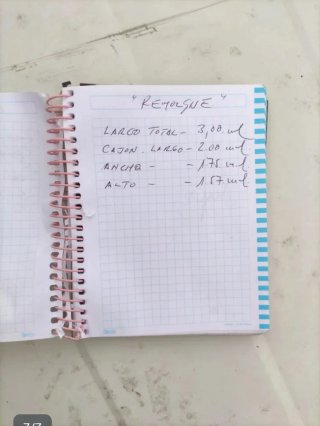 "REMOLQUE"
LARGO TOTAL - 3,00 mt
CAJON LARGO - 2.00 mt
ANCHO - - 1.75 mt
ALTO - - 1.57 mt
7/7